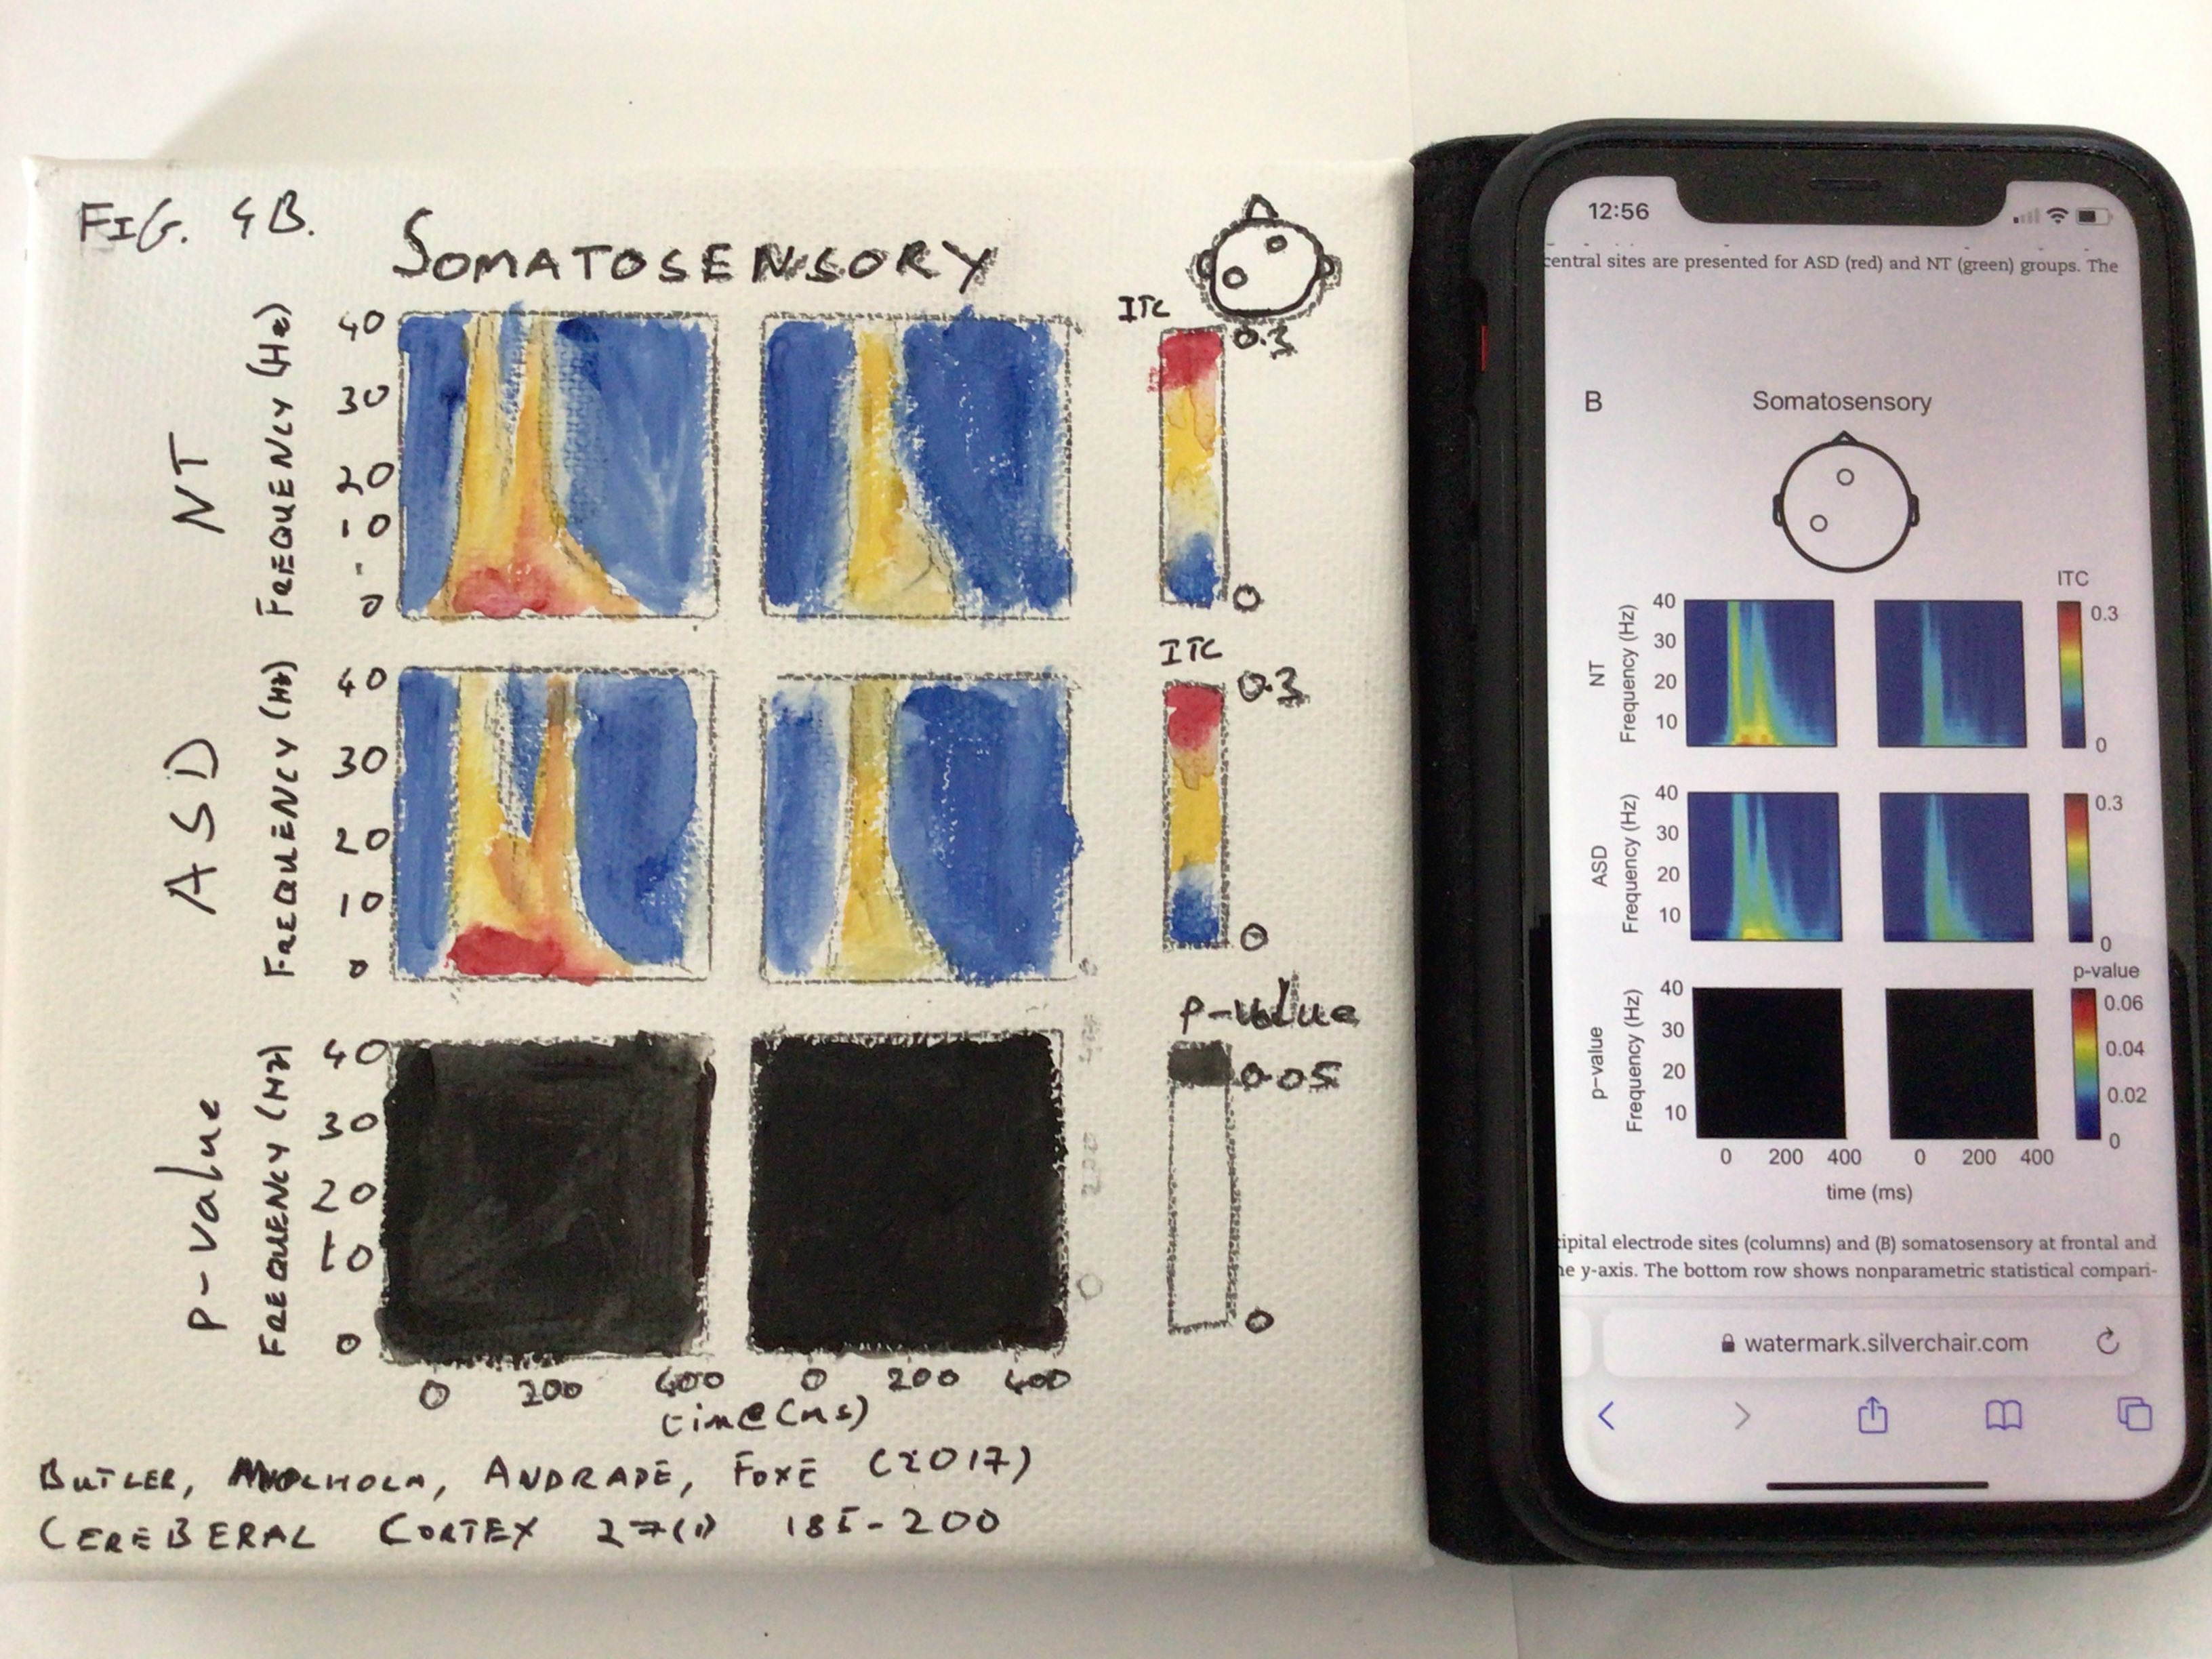 FIG. 4B.
SOMATOSENSORY
ITC
0.3
0
NT
FREQUENCY (Hz)
40
30
20
10
0
ITC
0.3
0
ASD
FREQUENCY (Hz)
40
30
20
10
0
p-value
0.05
0
P-value
FREQUENCY (Hz)
40
30
20
10
0
400
200
0
0 200 400 0 200 400
time (ms)
BUTLER, MOLHOLM, ANDRADE, FOXE (2017)
CEREBERAL CORTEX 27(1) 185-200
12:56
central sites are presented for ASD (red) and NT (green) groups. The
B Somatosensory
ITC
0.3
0
NT
Frequency (Hz)
40
30
20
10
0.3
0
ASD
Frequency (Hz)
40
30
20
10
p-value
0.06
0.04
0.02
0
p-value
Frequency (Hz)
40
30
20
10
0 200 400 0 200 400
time (ms)
cipital electrode sites (columns) and (B) somatosensory at frontal and
he y-axis. The bottom row shows nonparametric statistical compari-
watermark.silverchair.com